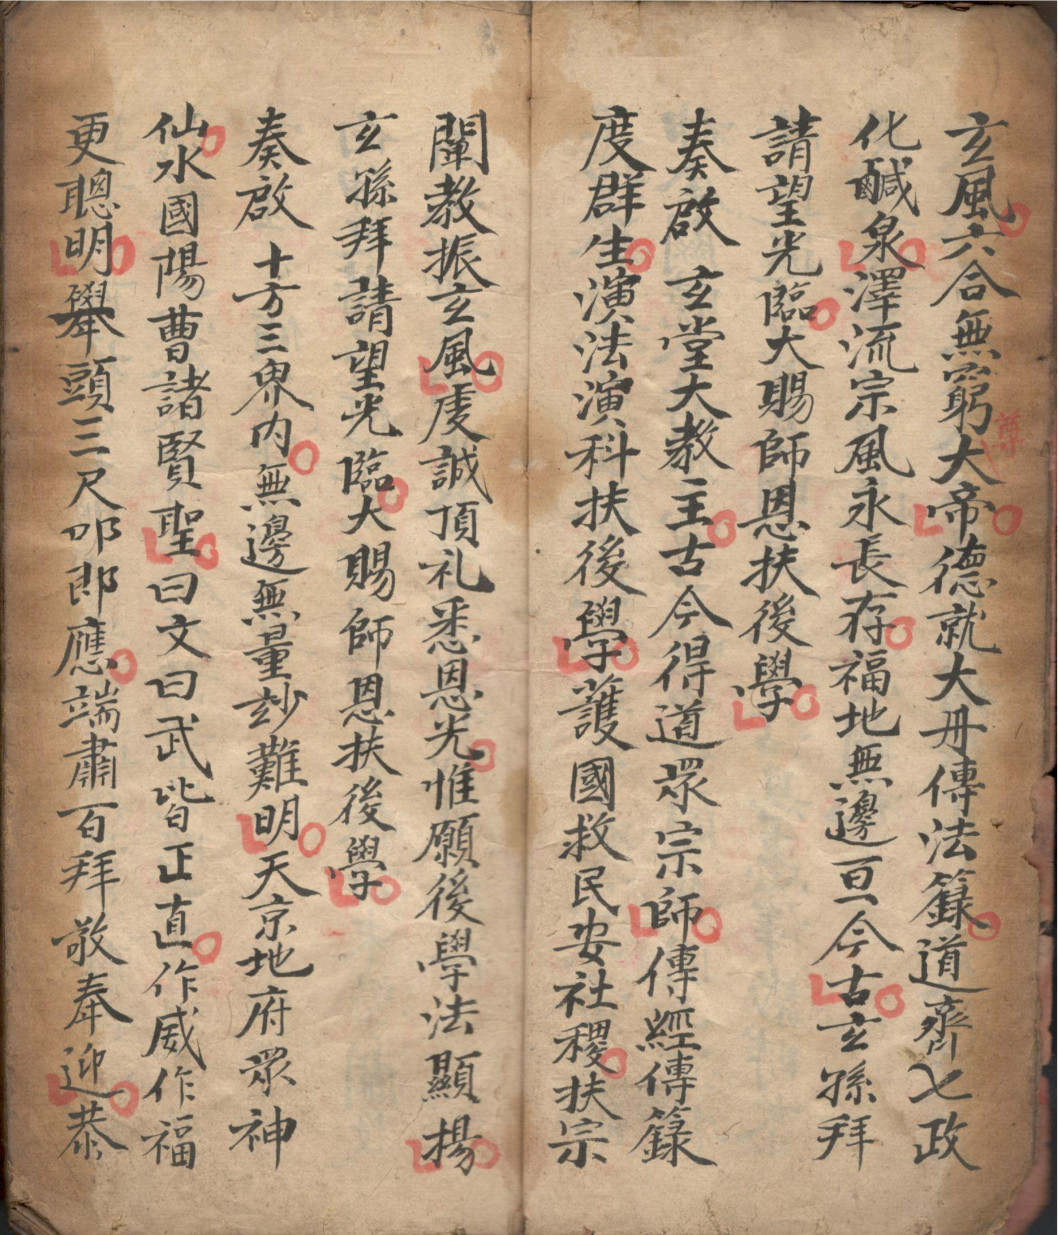 玄風六合無窮大帝德就大丹傳法籙道齊七政
化鹹泉澤流宗風永長存福地無邊亘今古玄孫拜
請望光臨大賜師恩扶後學
奏啟 玄堂大教主古今得道眾宗師傳經傳籙
度群生演法演科扶後學護國救民安社稷扶宗
闡教振玄風虔誠頂礼悉恩光惟願後學法顯揚
玄孫拜請望光臨大賜師恩扶後學
奏啟 十方三界內無邊無量玅難明天京地府眾神
仙水國陽曹諸賢聖曰文曰武皆正直作威作福
更聰明舉頭三尺叩即應端肅百拜敬奉迎恭